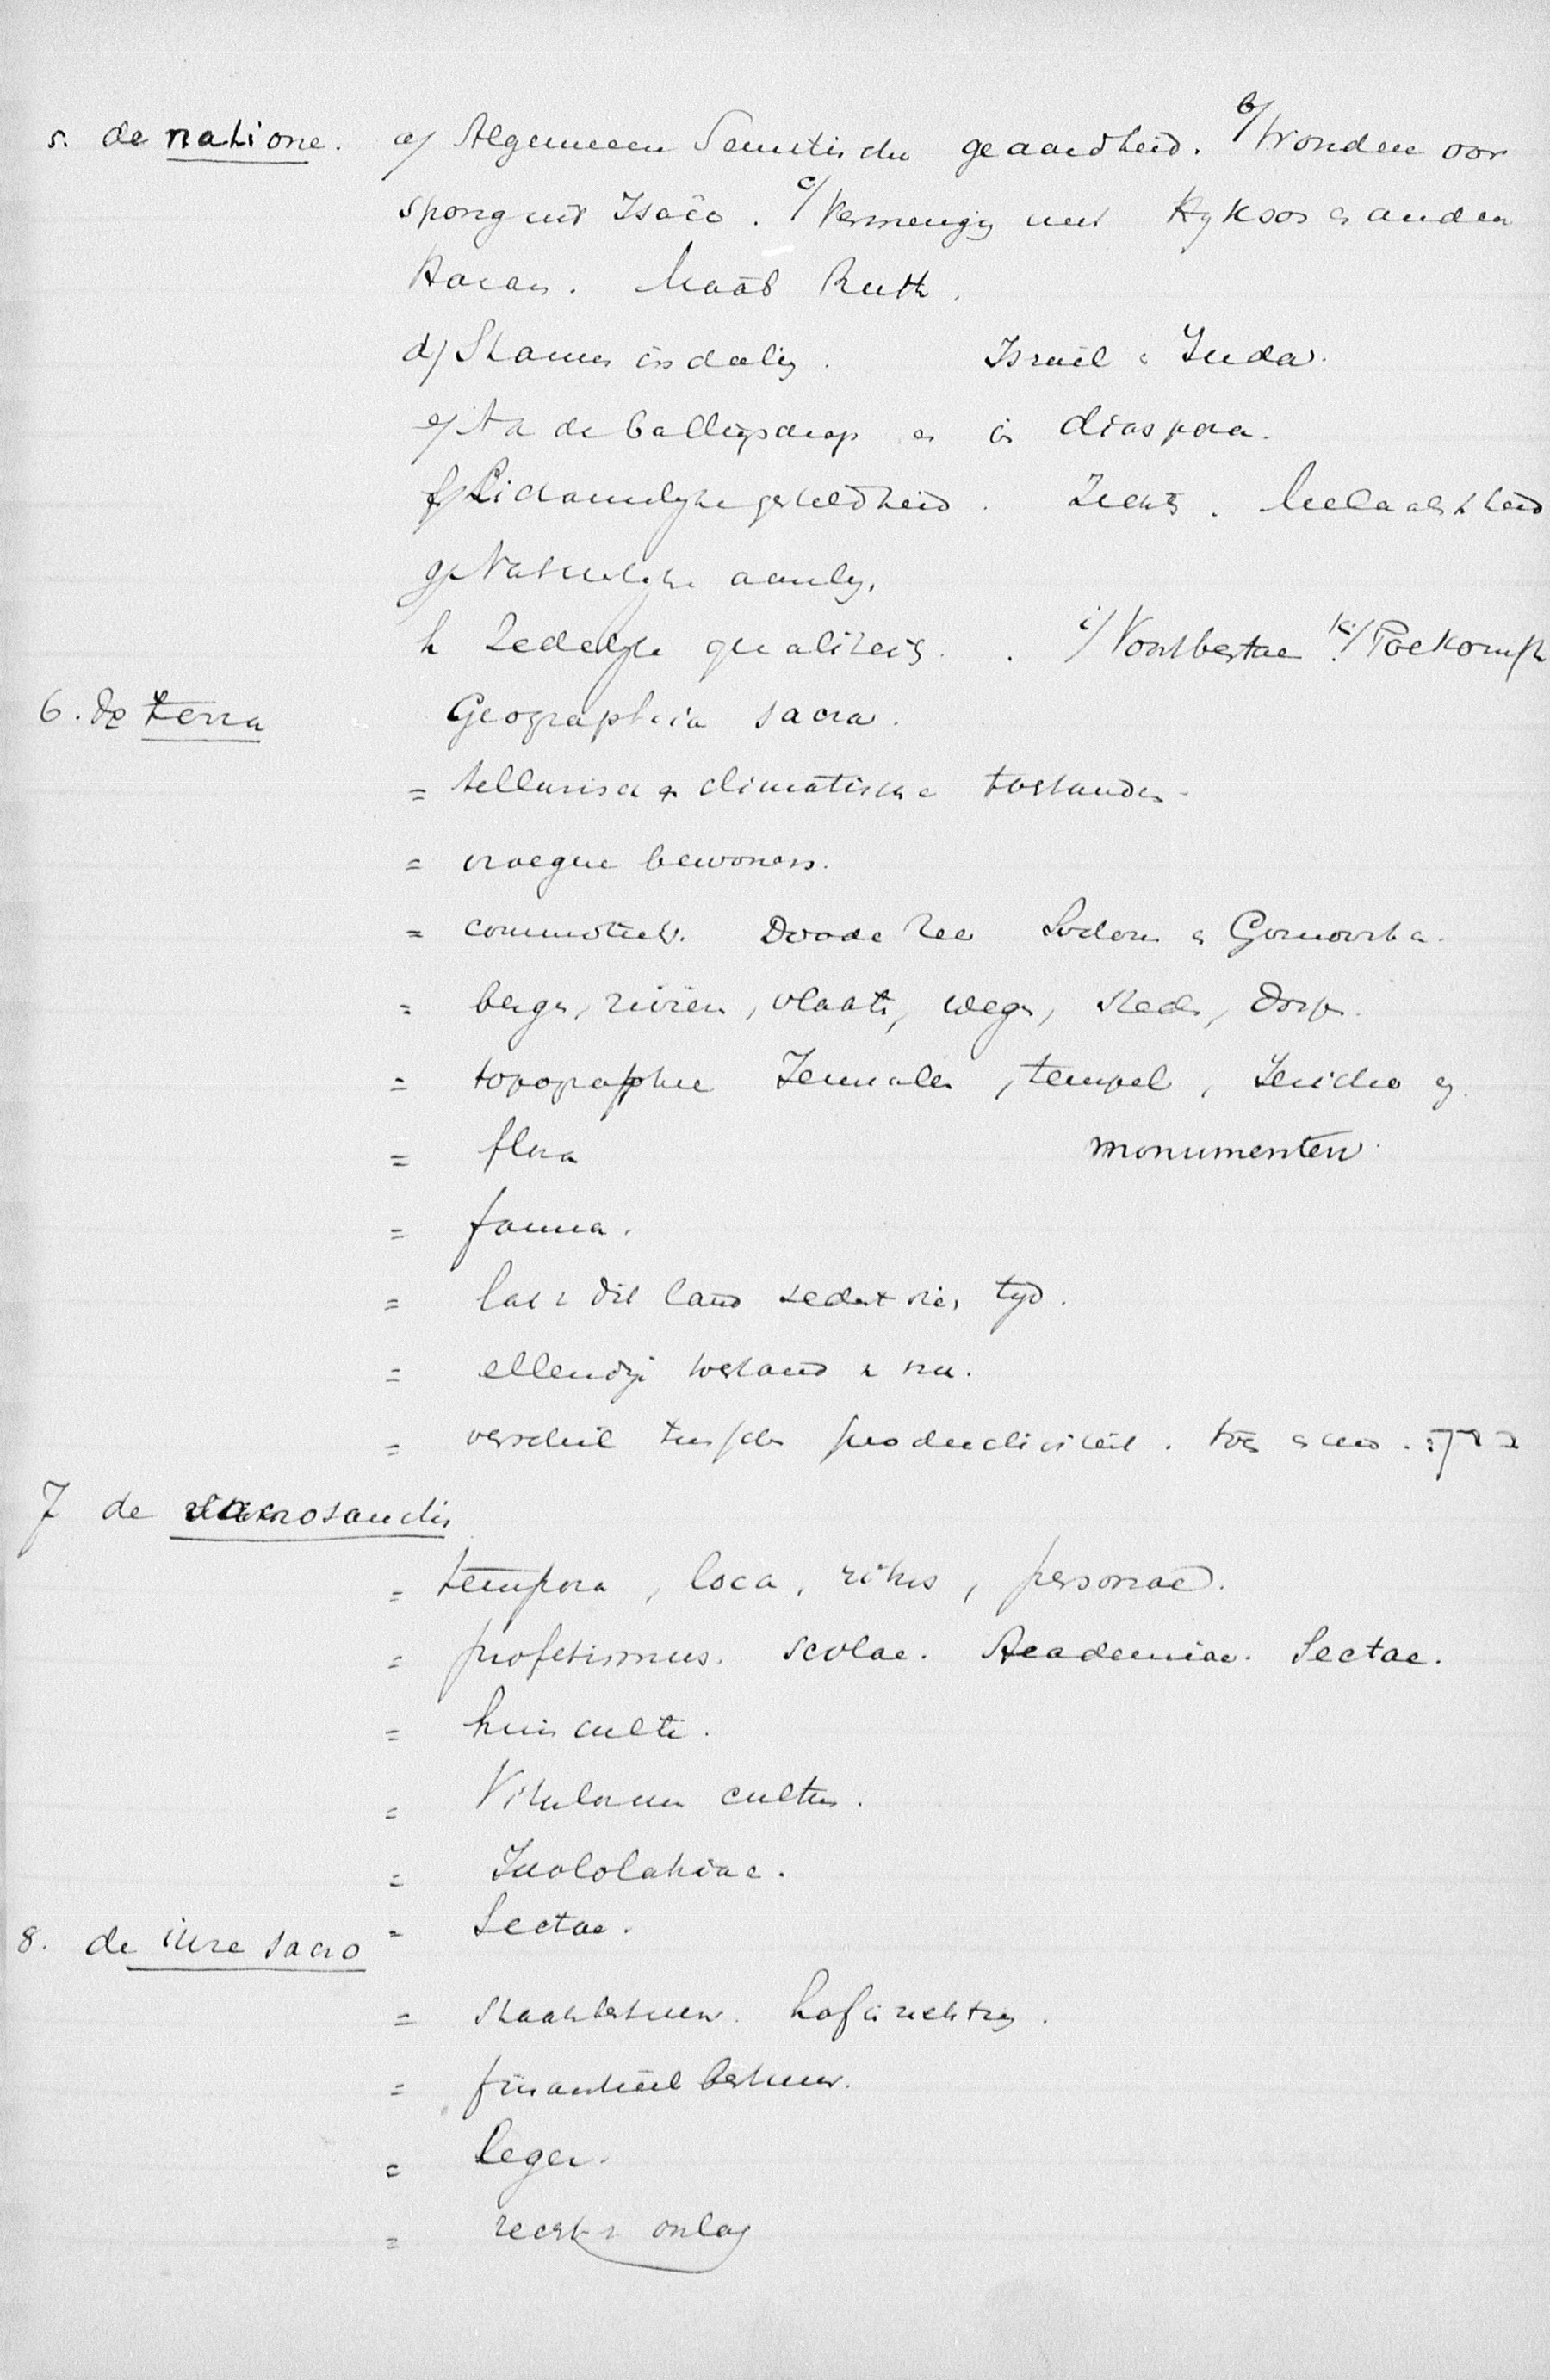 5. de natione. a/ Algemeen Semitische geaardheid. b/ Wonden oor
sprong uit Isaäc. c/ Vermenging met Hyksos en anden
Racen. Moäb Ruth.
d/ Stammen indeeling. Israël & Juda.
e/ Na de ballingschap en in diaspora.
f/ Lichamelijke gesteldheid. Ziekte. Melaatschheid
g/ Natuurlyke aanleg.
h Zedelijke qualiteit. i/ Voortbestaan k./ Toekomst
6. de terra Geographia sacra.
= tellurische & climatische toestanden.
= vroegere bewoners.
= commotiën. Doode Zee Sodom & Gomorrha.
= bergen, rivieren, vlakte, wegen, steden, dorpen.
= topographie Jerusalem, tempel, Jericho en
= flora monumenten.
= fauna.
= lot v dit land sedert dien tyd.
= ellendige toestand v nu.
= verschil tusschen productiviteit. toen en nu.
7 de sacrosanctis
= tempora, loca, ritus, personae.
= profetismus. Scolae. Academiae. Sectae.
= huis culte.
= Vitulorum cultus.
= Idololatriae.
= Sectae.
8. de iure sacro
= Staatsbestuur. hofinrichting.
= finantieel bestuur.
= leger.
= recht